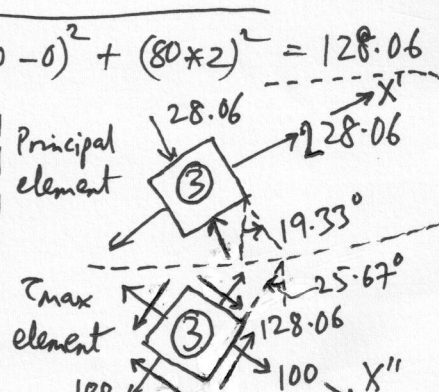 0-0)² + (80*2)² = 128.06
X'
28.06
228.06
Principal
element
3
19.33°
25.67°
τmax
element
3
128.06
100
X"
100